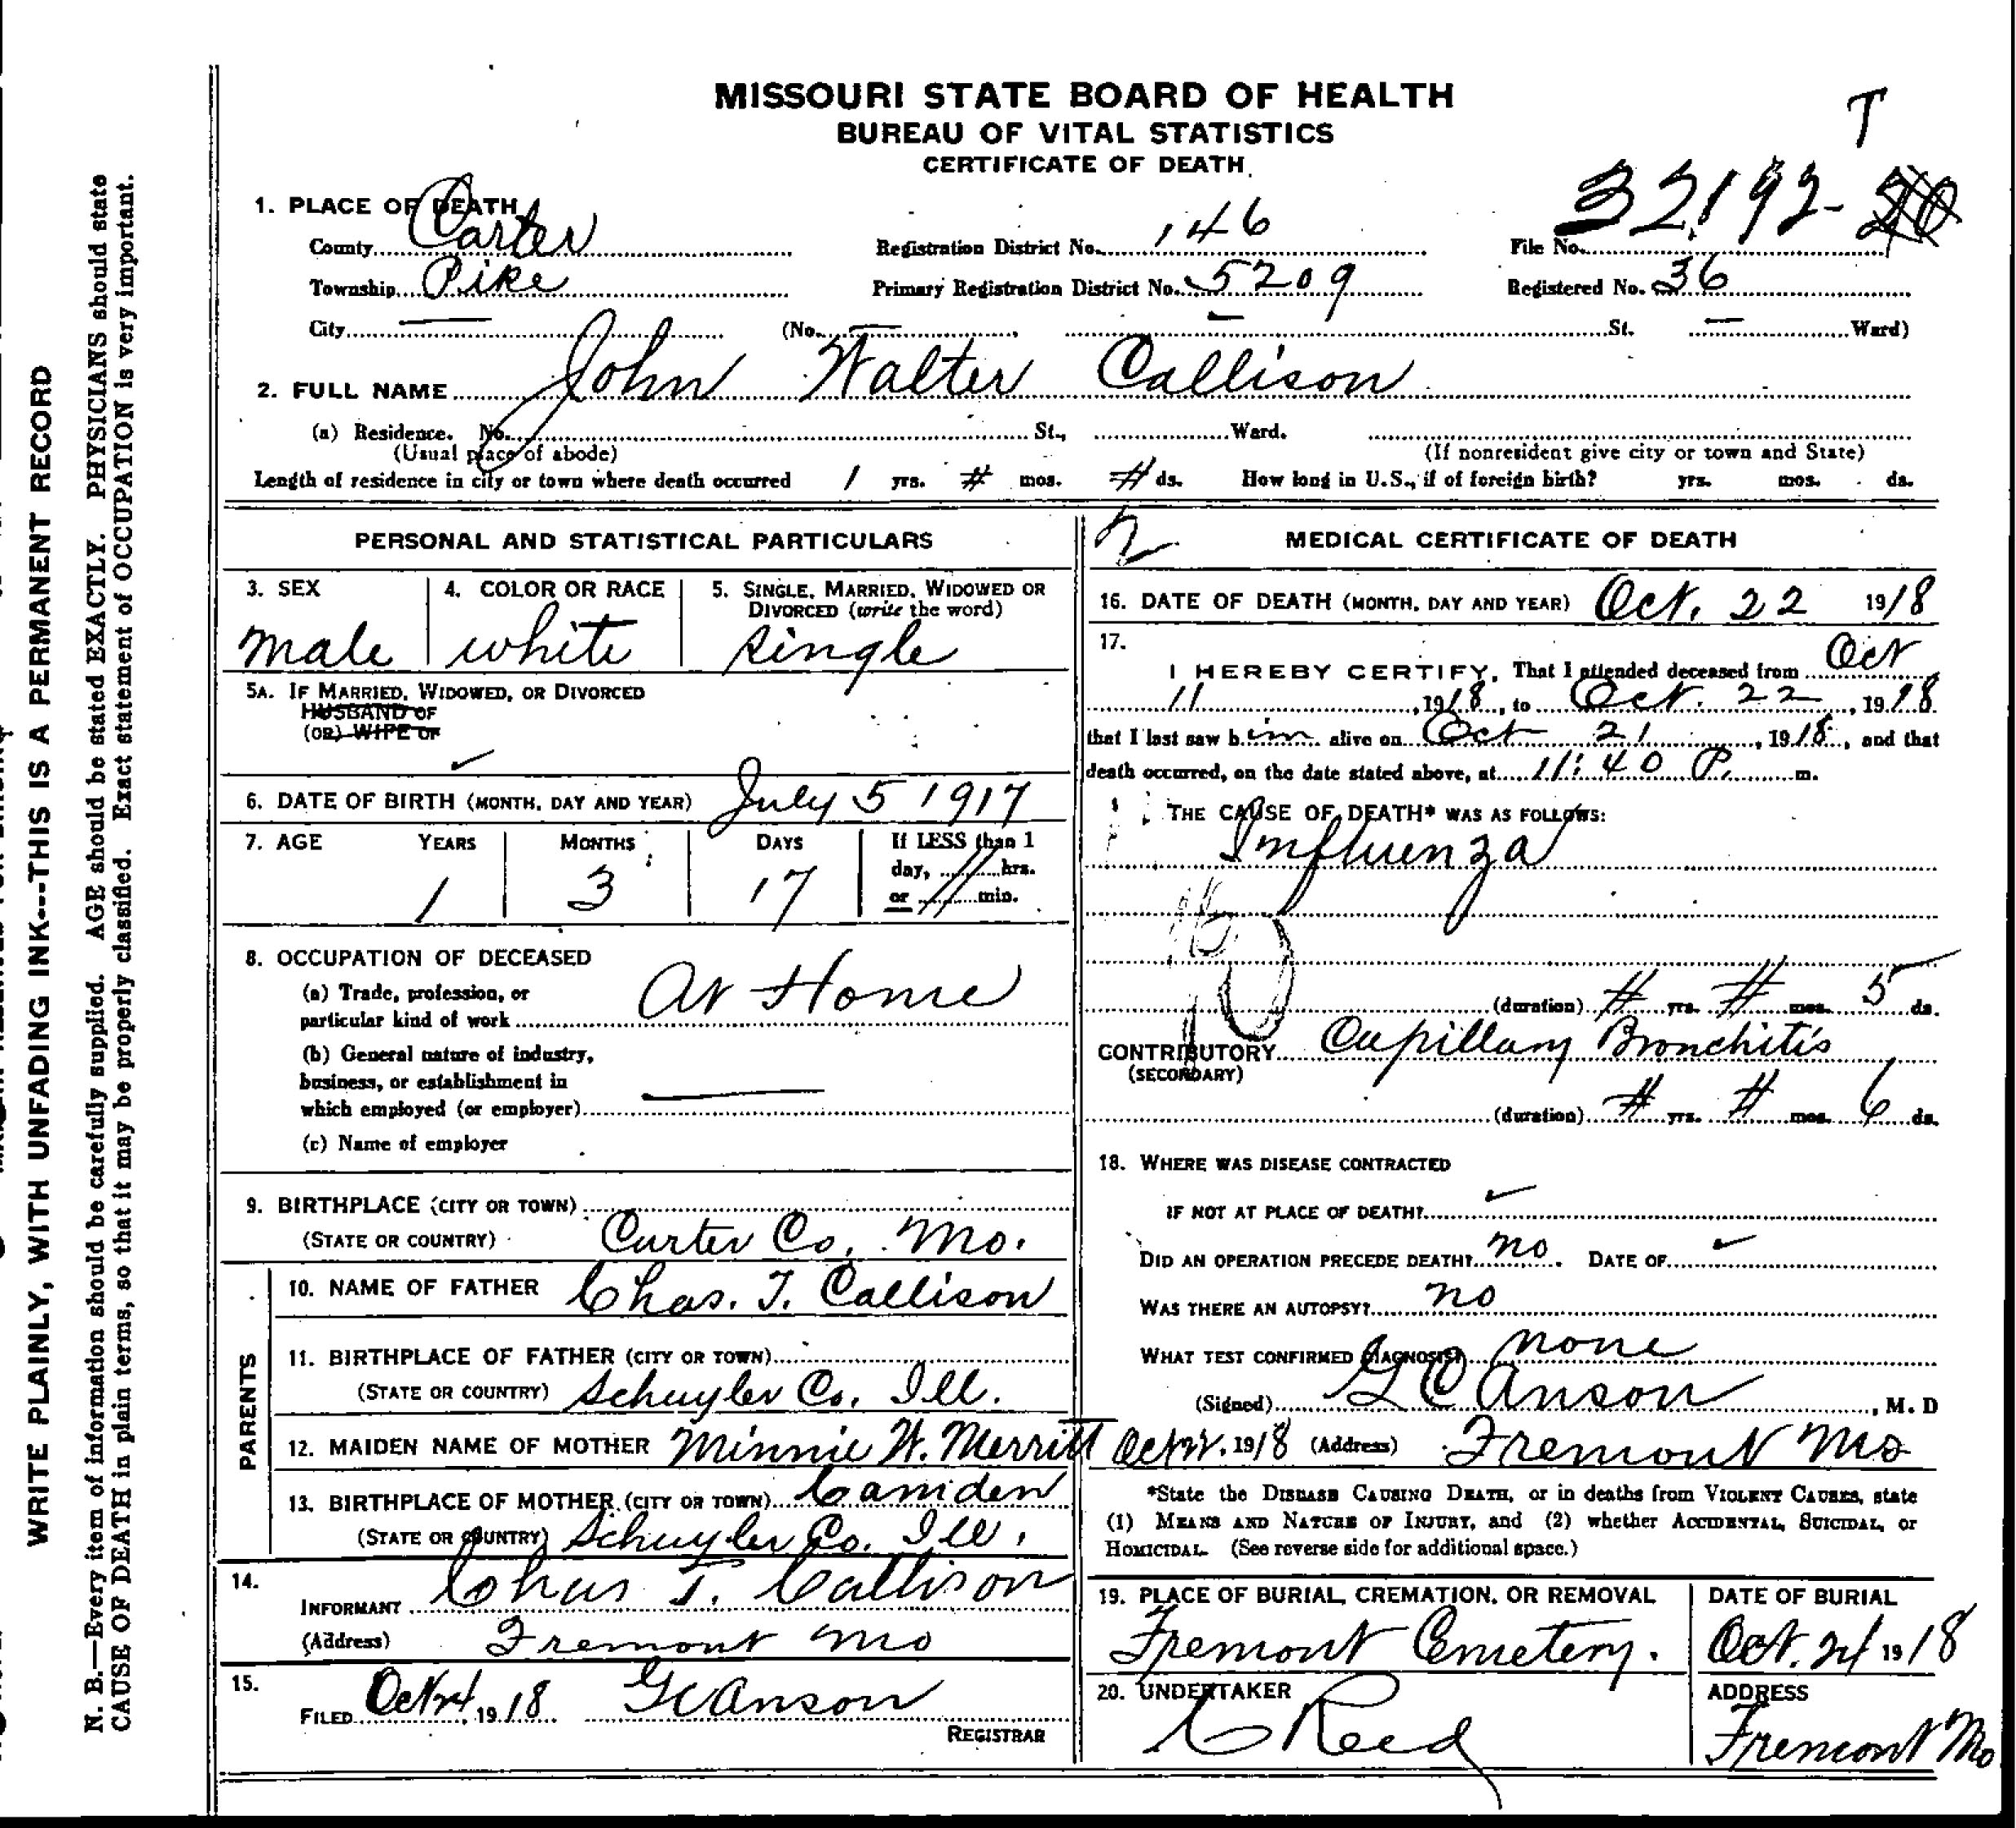 MISSOURI STATE BOARD OF HEALTH
BUREAU OF VITAL STATISTICS
CERTIFICATE OF DEATH
T
32192
1. PLACE OF DEATH
County Carter Registration District No. 146 File No.
Township Pike Primary Registration District No. 5209 Registered No. 36
City — (No. — , — St. — Ward)
2. FULL NAME John Walter Callison
(a) Residence. No. St., Ward.
(Usual place of abode) (If nonresident give city or town and State)
Length of residence in city or town where death occurred 1 yrs. # mos. # ds. How long in U.S., if of foreign birth? yrs. mos. ds.
PERSONAL AND STATISTICAL PARTICULARS
3. SEX 4. COLOR OR RACE 5. SINGLE, MARRIED, WIDOWED OR
DIVORCED (write the word)
male white single
5A. IF MARRIED, WIDOWED, OR DIVORCED
HUSBAND OF
(OR) WIFE OF
6. DATE OF BIRTH (MONTH, DAY AND YEAR) July 5 1917
7. AGE YEARS MONTHS DAYS If LESS than 1
day, hrs.
1 3 17 or min.
8. OCCUPATION OF DECEASED
(a) Trade, profession, or
particular kind of work At Home
(b) General nature of industry,
business, or establishment in
which employed (or employer) —
(c) Name of employer
9. BIRTHPLACE (CITY OR TOWN)
(STATE OR COUNTRY) Carter Co. Mo.
PARENTS
10. NAME OF FATHER Chas. T. Callison
11. BIRTHPLACE OF FATHER (CITY OR TOWN)
(STATE OR COUNTRY) Schuyler Co. Ill.
12. MAIDEN NAME OF MOTHER Minnie W. Merritt
13. BIRTHPLACE OF MOTHER (CITY OR TOWN) Camden
(STATE OR COUNTRY) Schuyler Co. Ill.
14.
INFORMANT Chas T. Callison
(Address) Fremont Mo
15.
FILED Oct 24, 1918 G C Anson
REGISTRAR
MEDICAL CERTIFICATE OF DEATH
16. DATE OF DEATH (MONTH, DAY AND YEAR) Oct. 22 1918
17.
I HEREBY CERTIFY, That I attended deceased from Oct
11, 1918, to Oct. 22, 1918
that I last saw him alive on Oct 21, 1918, and that
death occurred, on the date stated above, at 11:40 P. m.
THE CAUSE OF DEATH* WAS AS FOLLOWS:
Influenza
(duration) # yrs. # mos. 5 ds.
CONTRIBUTORY Capillary Bronchitis
(SECONDARY)
(duration) # yrs. # mos. 6 ds.
18. WHERE WAS DISEASE CONTRACTED
IF NOT AT PLACE OF DEATH?
DID AN OPERATION PRECEDE DEATH? no. DATE OF
WAS THERE AN AUTOPSY? no
WHAT TEST CONFIRMED DIAGNOSIS? none
(Signed) G C Anson, M. D
Oct 22, 1918 (Address) Fremont Mo
*State the DISEASE CAUSING DEATH, or in deaths from VIOLENT CAUSES, state
(1) MEANS AND NATURE OF INJURY, and (2) whether ACCIDENTAL, SUICIDAL, or
HOMICIDAL. (See reverse side for additional space.)
19. PLACE OF BURIAL, CREMATION, OR REMOVAL DATE OF BURIAL
Fremont Cemetery. Oct. 24 1918
20. UNDERTAKER ADDRESS
C Reed Fremont Mo
WRITE PLAINLY, WITH UNFADING INK---THIS IS A PERMANENT RECORD
N. B.—Every item of information should be carefully supplied. AGE should be stated EXACTLY. PHYSICIANS should state
CAUSE OF DEATH in plain terms, so that it may be properly classified. Exact statement of OCCUPATION is very important.